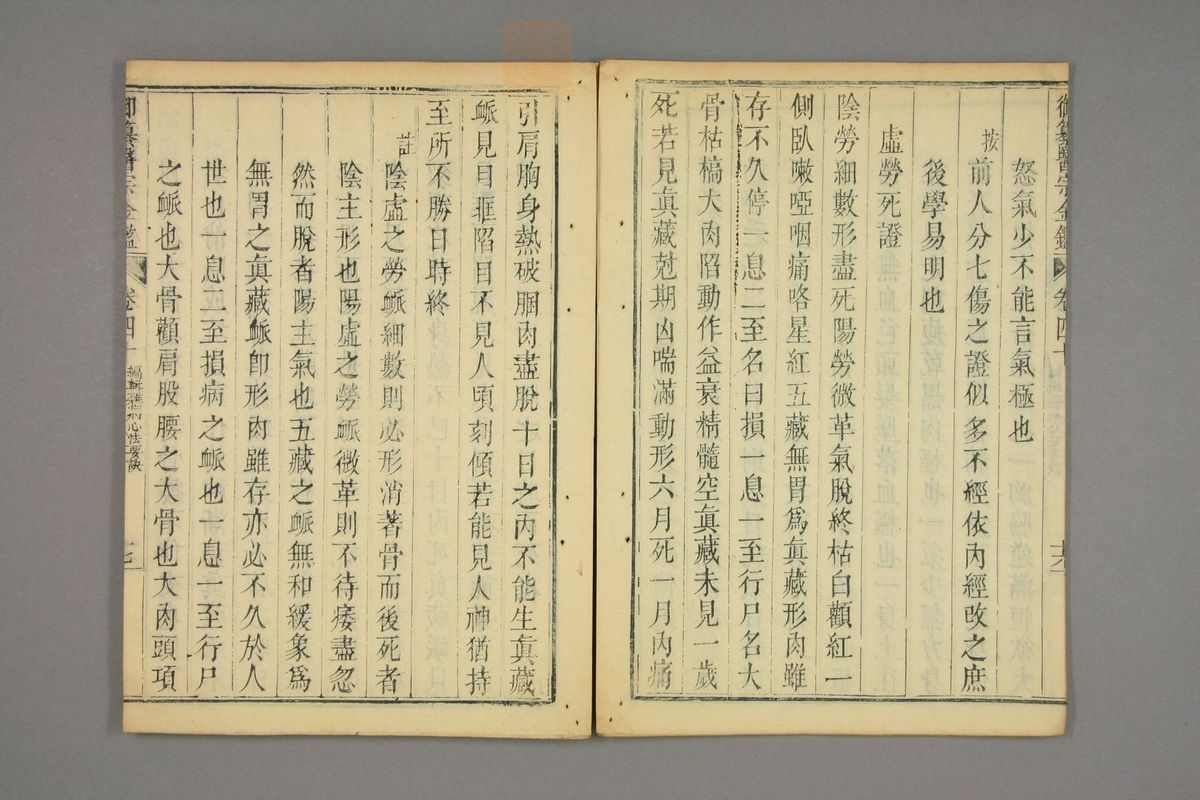 御纂醫宗金鑑 卷四十 六
怒氣少不能言氣極也
按 前人分七傷之證似多不經依內經改之庶
後學易明也
虛勞死證
陰勞細數形盡死陽勞微革氣脫終枯白顴紅一
側臥嗽啞咽痛咯星紅五藏無胃為眞藏形肉雖
存不久停一息二至名曰損一息一至行尸名大
骨枯槁大肉陷動作益衰精髓空眞藏未見一歲
死若見眞藏尅期凶喘滿動形六月死一月內痛
引肩胸身熱破䐃肉盡脫十日之內不能生眞藏
䘑見目眶陷目不見人頃刻傾若能見人神猶持
至所不勝日時終
註 陰虛之勞䘑細數則必形消著骨而後死者
陰主形也陽虛之勞䘑微革則不待痿盡忽
然而脫者陽主氣也五藏之䘑無和緩象為
無胃之眞藏䘑卽形肉雖存亦必不久於人
世也一息二至損病之䘑也一息一至行尸
之䘑也大骨顴肩股腰之大骨也大肉頭項
御纂醫宗金鑑 卷四十 編輯雜病心法要訣 七